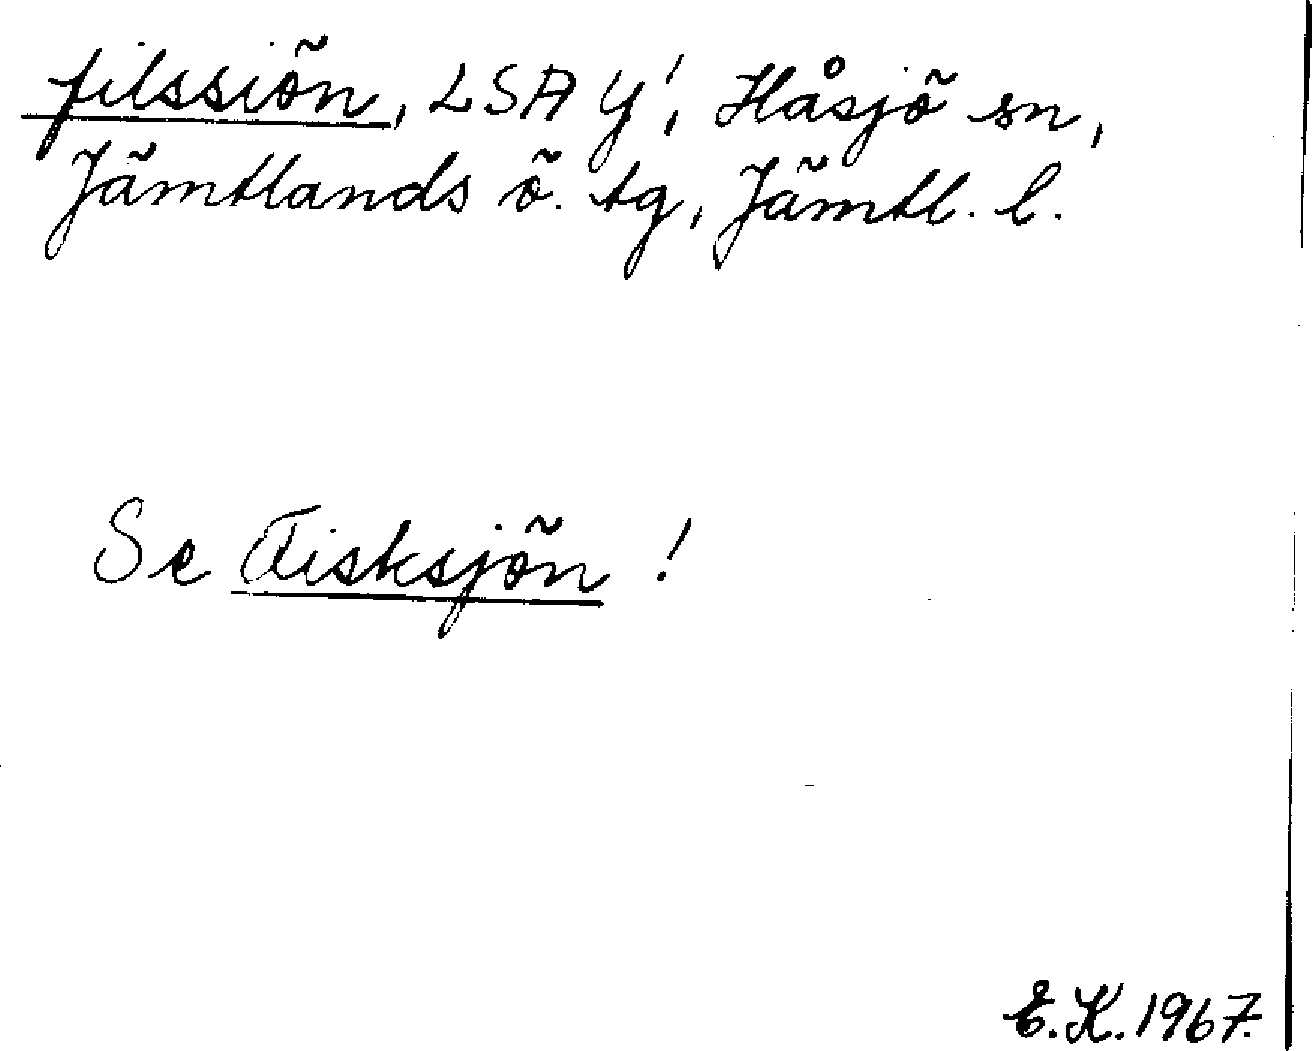 filssiön, LSA Y', Håsjö sn,
Jämtlands ö. tg, Jämtl. l.
Se Fisksjön !
E.K. 1967.